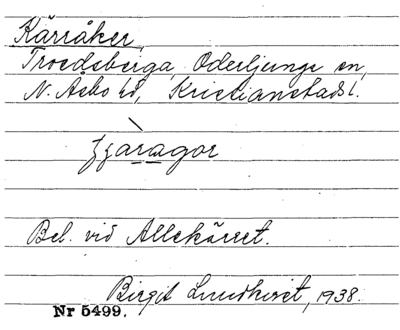 Kärråker,
Troedsberga, Oderljunga sn,
N. Åsbo hd, Kristianstads l.
fjàragor
Bel. vid Allekärret.
Birgit Lundkvist, 1938.
Nr 5499.